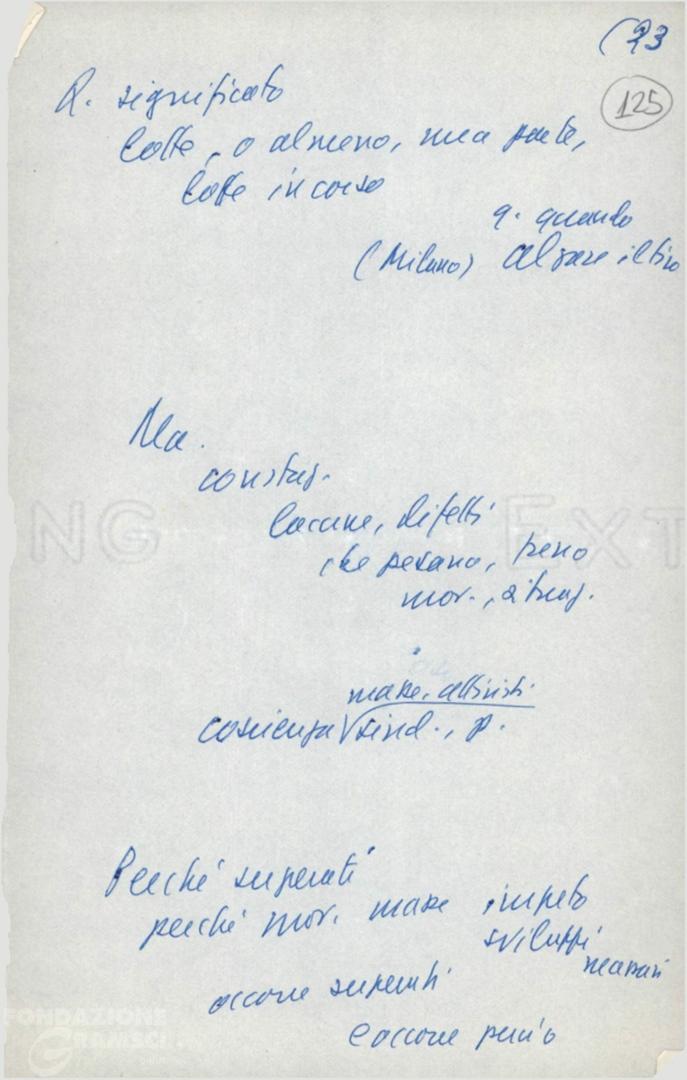 (23
125
Q. significato
lotte, o almeno, una parte,
lotte in corso
q. quando
(Milano) alzare il tiro
Ma.
constaz.
lacune, difetti
che pesano, freno
mov., situaz.
masse, attivisti
coscienza √ sind., p.
Perché superati
perché mov. masse impeto
sviluppi
necessari
occorre superarli
e occorre perciò
NG EXT
FONDAZIONE
GRAMSCI